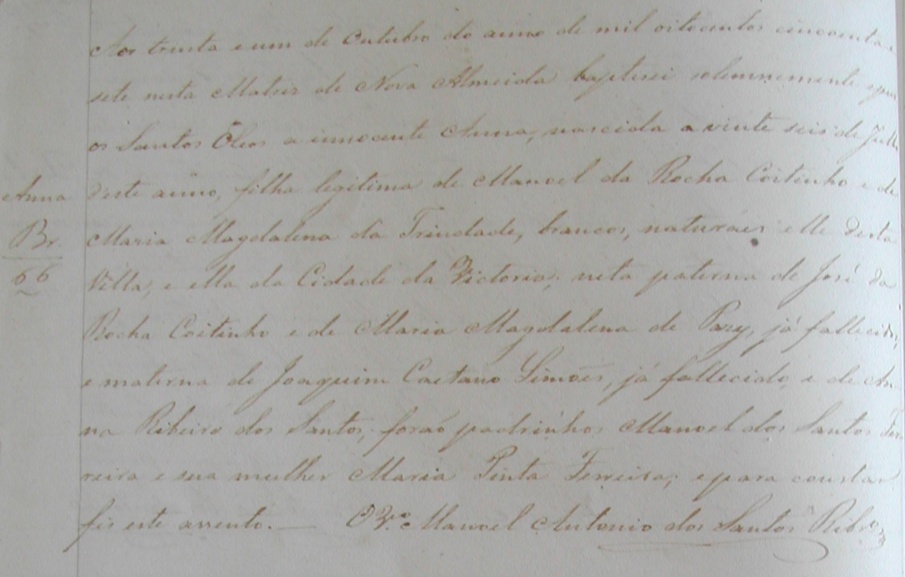 Aos trinta e um de Outubro do anno de mil oitocentos cincoenta e
sete nesta Matriz de Nova Almeida baptisei solemnemente e puz
os Santos Oleos a innocente Anna, nascida a vinte seis de Julho
Anna
deste anno, filha legitima de Manoel da Rocha Coitinho e de
Br.
Maria Magdalena da Trindade, brancos, naturaes elle desta
66
Villa, e ella da Cidade da Victoria; neta paterna de José da
Rocha Coitinho e de Maria Magdalena de já fallecidos,
e materna de Joaquim Caetano Simões, já fallecido, e de An-
na Ribeiro dos Santos; foraõ padrinhos Manoel dos Santos Fer
reira e sua mulher Maria Pinta Ferreira; e para constar
fis este assento. — O Vr.o Manoel Antonio dos Santos Ribr.o